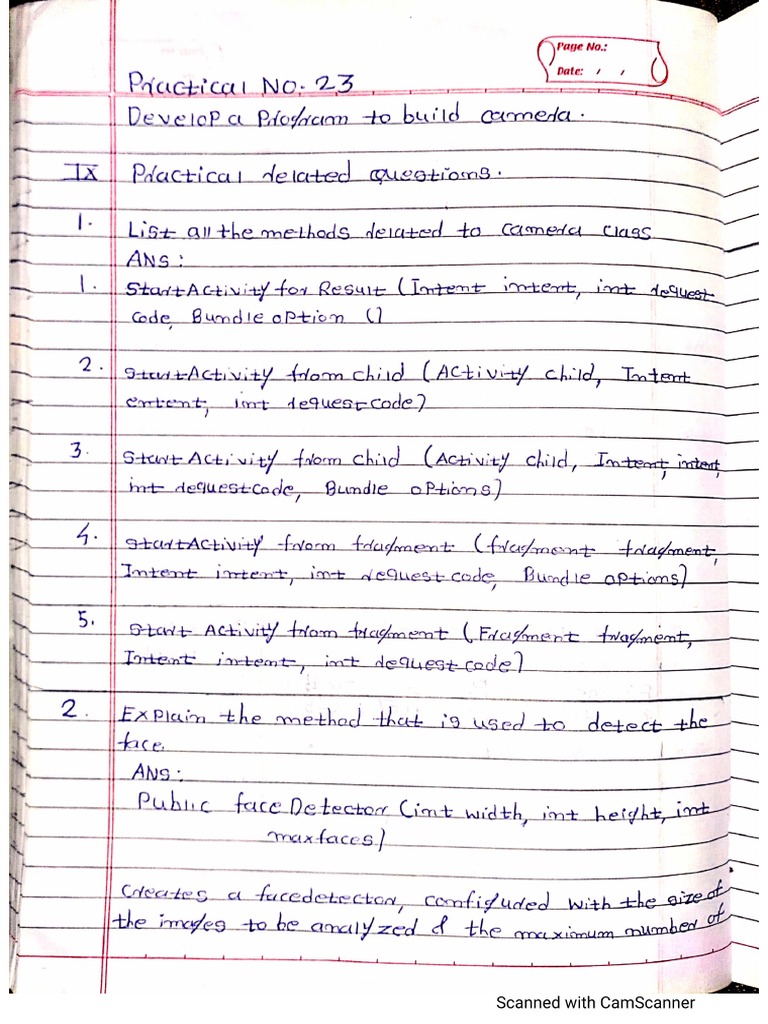 Page No.:
Date: / /
Practical No. 23
Develop a Program to build camera.
IX Practical related questions.
1. List all the methods related to camera class
ANS:
1. StartActivity for Result (Intent intent, int request
code, Bundle option ()
2. StartActivity from child (Activity child, Intent
entent, int requestcode)
3. Start Activity from child (Activity child, Intent, intent,
int requestcode, Bundle options)
4. StartActivity from fragment (fragment fragment,
Intent intent, int request code, Bundle options)
5. Start Activity from fragment (Fragment fragment,
Intent intent, int request code)
2. Explain the method that is used to detect the
face.
ANS:
Public face Detector (int width, int height, int
maxfaces)
Creates a facedetector, configured with the size of
the images to be analyzed & the maximum number of
Scanned with CamScanner